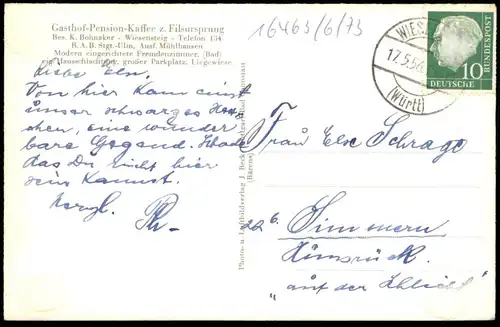 Gasthof-Pension-Kaffee z. Filsursprung
Bes. K. Bohnaker - Wiesensteig - Telefon 134
R.A.B. Stgt.-Ulm, Ausf. Mühlhausen
Modern eingerichtete Fremdenzimmer, (Bad)
eig. Hausschlachtung, großer Parkplatz, Liegewiese
16463/6/73
WIES
17.5.56
(Württ)
10
DEUTSCHE
BUNDESPOST
Liebe Else.
Von hier kam einst
unser schwarzes
eine wunder
bare Gegend. Schade
das Du nicht hier
sein kannst.
Herzl.
Photo- u. Luftbildverlag J. Beck
Frau Else Schrage
22b Simmern
Hunsrück
"auf der Schleid"